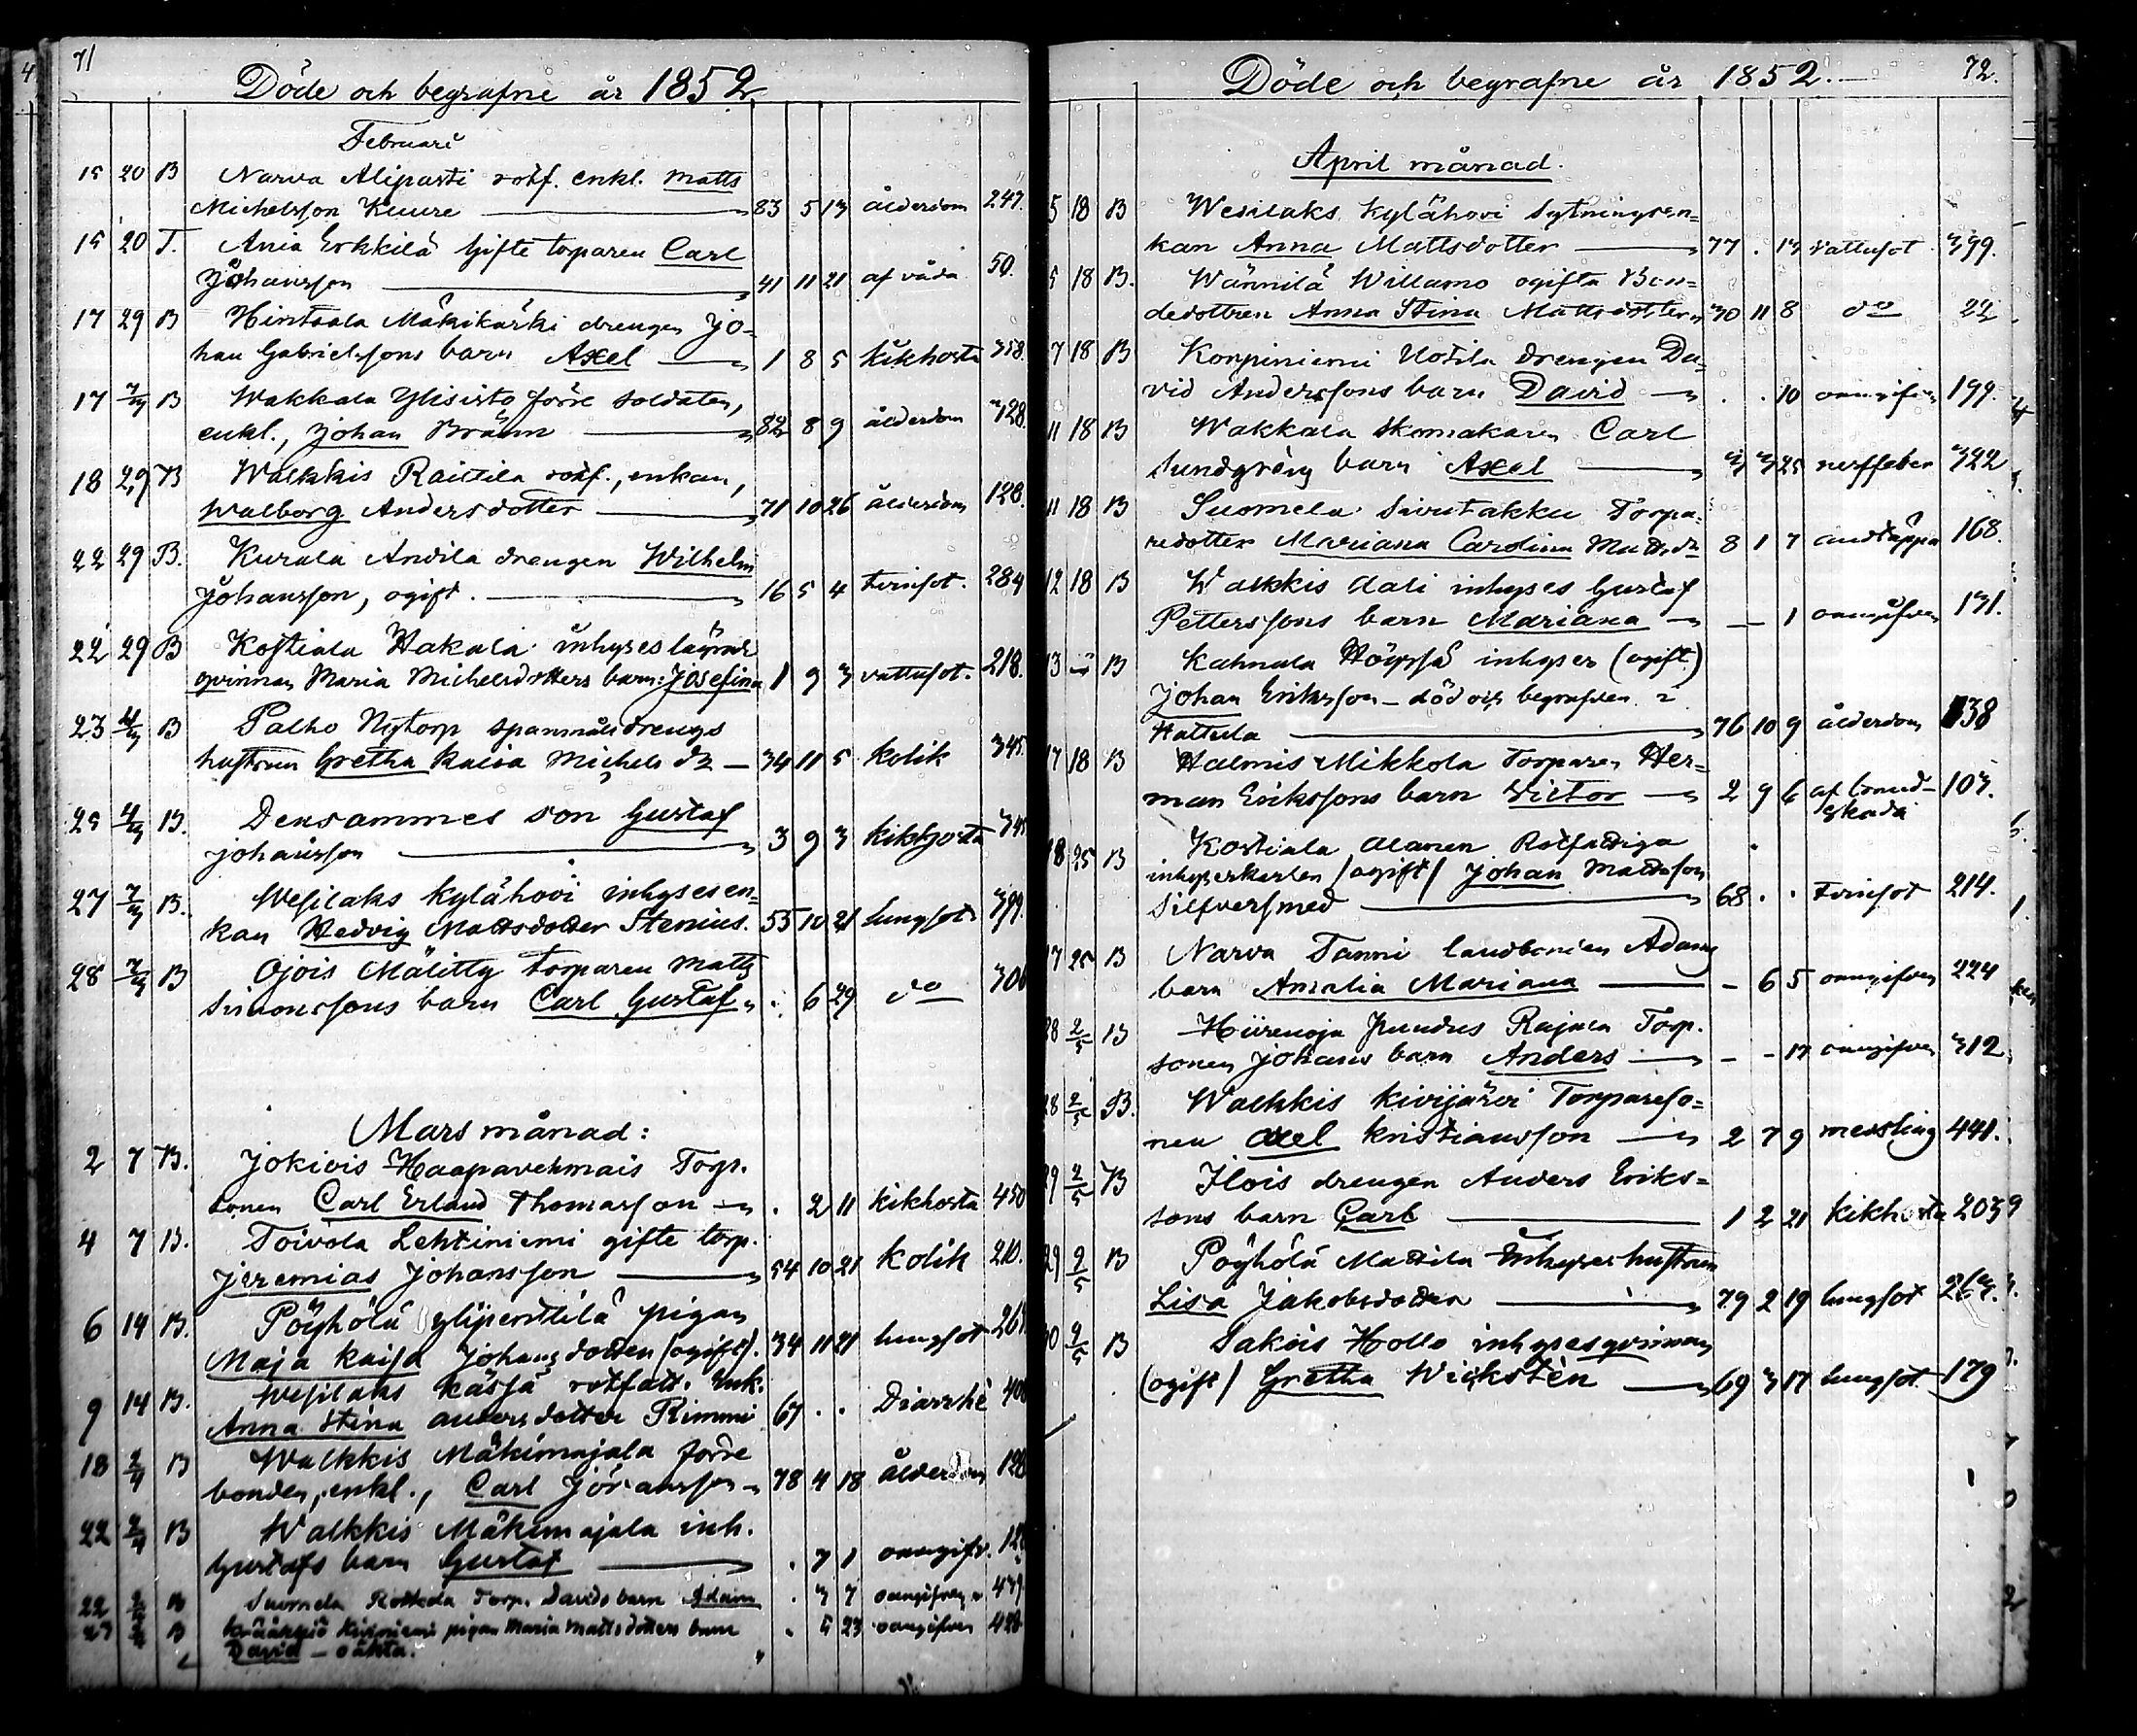 71
Döde och begrafne år 1852
Februari
15 20 B Narva Aliparti rotf. enkl. Matts
Michelsson Kuure 83 5 13 ålderdom 247.
15 20 T. Ania Erkkilä Gifte torparen Carl
Johansson 41 11 21 af våda 50.
17 29 B Hintsala Mäkikärki drengen Jo-
han Gabrielssons barn Axel 1 8 5 kikhosta 358.
17 7/3 B Wakkala Ylisisto förre soldaten,
enkl., Johan Bräun 82 8 9 ålderdom 328.
18 29 B Walkkis Raittila rotf., enkan,
Walborg Andersdotter 71 10 26 ålderdom 128.
22 29 B. Kurala Anvila drengen Wilhelm
Johansson, ogift. 16 5 4 tvinsot. 284
22 29 B Kostiala Hakala inhyses lägrade
qvinnan Maria Michelsdotters barn: Josefina 1 9 3 vattusot. 218.
23 4/3 B Palho Nytorp spannmålsdrengs
hustrun Gretha Kaisa Michels dr 34 11 5 kolik 345.
25 4/3 B. Densammes son Gustaf
Johansson 3 9 3 kikhosta 345
27 7/3 B. Wesilaks Kylähovi inhysesen-
kan Hedvig Mattsdotter Stenius. 55 10 21 lungsot 399.
28 7/3 B Ojois Mälitty torparen Matts
Simonssons barn Carl Gustaf . 6 29 do 306
Mars månad:
2 7 B. Jokiois Haapavehmais Torp.
sonen Carl Erland Thomasson . 2 11 kikhosta 450
4 7 B. Toivola Lehtiniemi gifte torp.
Jeremias Johansson 54 10 21 kolik 210.
6 14 B. Pöyhölä ylipenttilä pigan
Maja Kaisa Johansdotter (ogift). 34 11 21 lungsot
9 14 B. Wesilaks Kässä rotfatt. Enk.
Anna Stina Andersdotter Rimmi 67 . . Diarrhé
18 2/4 B Walkkis Mäkimajala förre
bonden, enkl., Carl Jöransson 78 4 18 ålderdom 128
22 2/4 B Walkkis Mäkimajala inh.
Gustafs barn Gustaf . 7 1 oangifv. 128
22 2/4 B Suomela Torp. Davids barn Adam . 3 7 oangifven 439
23 2/4 B Kivuniemi pigan Maria Mattsdotters barn . 5 23 oangifven 428
David – oäkta.
72.
Döde och begrafne år 1852.
April månad.
5 18 B Wesilaks Kylähovi Sytningsen-
kan Anna Mattsdotter 77 . 13 vattusot 399.
5 18 B. Wännilä Willamo ogifta Bon-
dedottren Anna Stina Mattsdotter 30 11 8 do 22
7 18 B Korpiniemi Uotila drengen Da-
vid Anderssons barn David . . 10 oangifven 199.
11 18 B Wakkala Skomakaren Carl
Lundgréns barn Axel 3 3 25 nerffeber 322
11 18 B Suomela Sivutakku Torpa-
redotter Mariana Carolina Matts dr 8 1 7 andtäppa 168.
12 18 B Walkkis Aali inhyses Gustaf
Petterssons barn Mariana — 1 oangifven 131.
13 B Kahnala Höyssä inhyses (ogift)
Johan Eriksson – död och begrafven i
Hattula 76 10 9 ålderdom 138
17 18 B Halmis Mikkola Torparen Her-
man Erikssons barn Victor 2 9 6 af brand- 103.
skada
18 25 B Kostiala Alanen Rotfattiga
inhyseskarlen (ogift) Johan Mattsson
Silfversmed 68 . . tvinsot 214.
17 25 B Narva Tanni landbonden Adams
barn Amalia Mariana – 6 5 oangifven 224
28 2/5 B Hiirenoja Juudus Rajala Torp.
sonen Johans barn Anders – – 17 oangifven 312
28 2/5 B. Walkkis Kivijärvi Torpareso-
nen Axel Kristiansson 2 7 9 messling 441.
29 2/5 B Ilois drengen Anders Eriks-
sons barn Carl 1 2 21 kikhosta 2039
29 2/5 B Pöyhölä Mattila Inhyseshustrun
Lisa Jakobsdotter 79 2 19 lungsot
30 2/5 B Sakois Hollo inhysesqvinnan
(ogift) Gretha Wickstén 69 3 17 lungsot 179